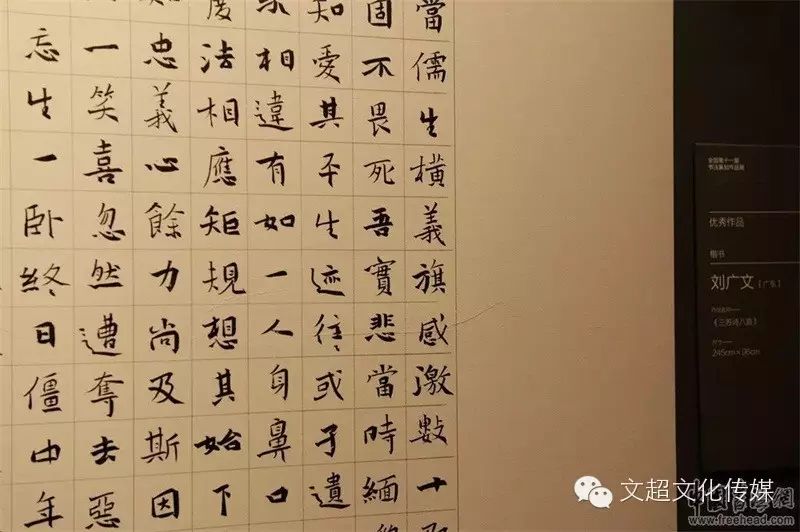 當儒生橫義旗感激數十
固不畏死吾實悲當時緬
知愛其平生迹往〻或予遺
相違有如一人身鼻口
度法相應矩規想其始下
忠義心餘力尚及斯因
一笑喜忽然遭奪去惡
忘生一卧終日僵中年
全国第十一届
书法篆刻作品展
优秀作品
楷书
刘广文 [广东]
《三苏诗八首》
尺寸——
245cm×96cm
文超文化传媒
www.freehead.com